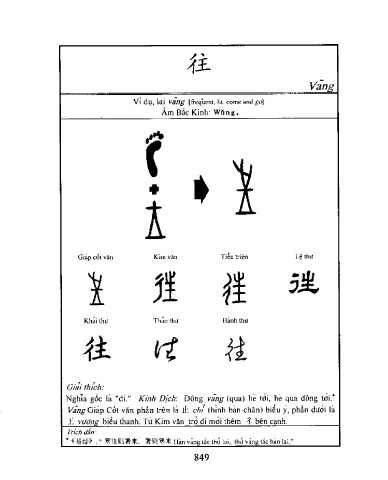 往
Vãng
Ví dụ, lai vãng [frequent, lit. come and go]
Âm Bắc Kinh: Wǎng.
Giáp cốt văn Kim văn Tiểu triện Lệ thư
Khải thư Thảo thư Hành thư
往
Giải thích:
Nghĩa gốc là "đi." Kinh Dịch: Đông vãng (qua) hè tới, hè qua đông tới.*
Vãng Giáp Cốt văn phần trên là 止 chỉ (hình bàn chân) biểu ý, phần dưới là
王 vương biểu thanh. Từ Kim văn trở đi mới thêm 彳 bên cạnh.
Trích dẫn
寒往则暑来, 暑则寒来 [hàn vãng tắc thử lai, thử vãng tắc hàn lai."
849